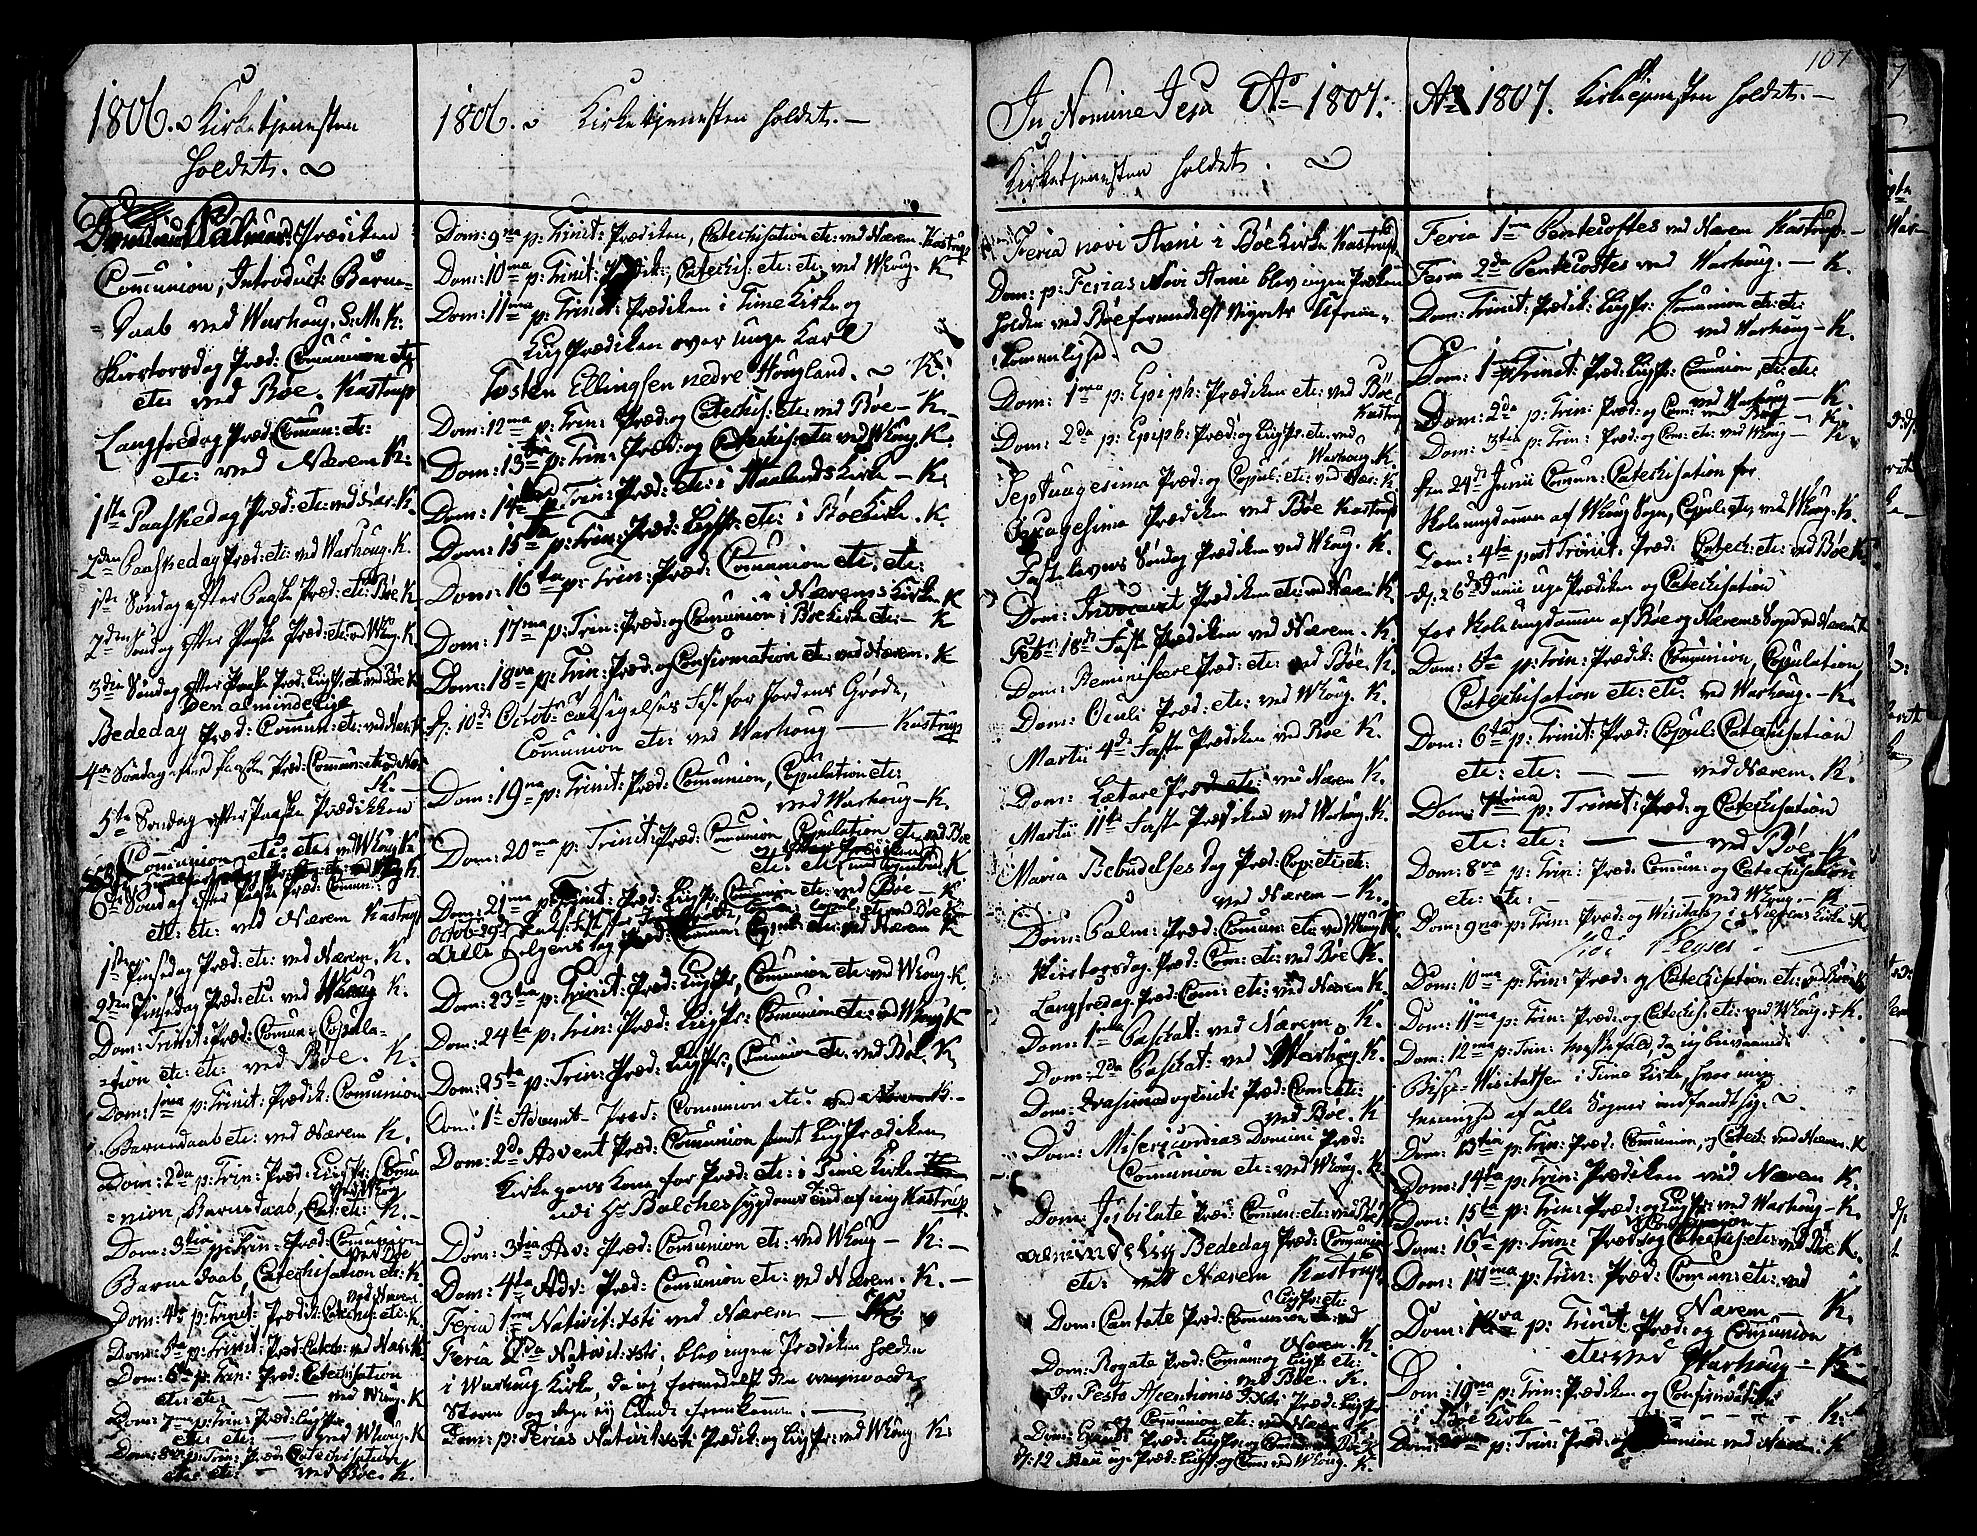 1806. Kirketjenesten
holdet.
Dominica Palmar: Prædiken
Communion, Introduct: Barne-
daab ved Warhoug. S.M.K:
Skirtorsdag Præd: Comunion etc
etc: ved Boe. Kastrup
Langfredag Præd: Comun: etc:
etc: ved Nærem K:
1ste Paaskedag Præd: etc: ved Nær: K.
2den Paaskedag Præd: etc: ved Warhoug. K.
1ste Søndag efter Paaske Præd: etc: Bøe K.
2den Søndag efter Paaske Præd: etc: ved Whoug. K
3die Søndag efter Paaske Præd: Ligpr: etc ved Bøe K
Den almindelige
Bededag Præd: Commun: etc: ved Nær. K
4de Søndag efter Paaske Præd: Commun: etc: ved Nær:
K.
5te Søndag efter Paaske Prædikken
Comunion etc: etc: ved Whoug K.
6te Søndag efter Paaske Præd: Comun:
etc: etc: ved Nærem Kastrup
1ste Pinsedag Præd: etc: ved Nærem. K.
2den Pinsedag Præd: etc: ved Whoug K.
Dom: Trinit: Præd: Comun: Copula-
-tion etc: etc: ved Boe. K.
Dom: 1ma p: Trinit: Prædik: Comunion
Barnedaab etc: ved Nærem K.
Dom: 2da p: Trin: Præd: Ligpr: Comu
ved Whoug
-nion, Barnedaab, Cat: etc: K.
Dom: 3tia p: Trin: Præd: Comunion
ved Boe
Barnedaab, Catechisation etc: K.
ved Nærem
Dom: 4ta p: Trinit: Prædik: Catechis: etc: K.
Dom: 5ta p: Trinit: Præd: Catech: ved Nær: K
Dom: 6ta p: Trin: Præd: Catechisation
etc: etc: — ved Whoug. K
Dom: 7ma p: Trin: Præd: Ligpr:
etc: etc: — ved Whoug. K
Dom: 8va p: Trin: Præd: Catechisation
etc: etc: — ved Bøe. K.
1806. Kirketjenesten holdet. —
Dom: 9na p: Trinit: Prædiken, Catechisation etc: ved Nærem. Kastrup
Dom: 10ma p: Trinit: Prædik:, Catechis: etc: etc: ved Whoug. K
Dom: 11ma p: Trinit: Prædiken i Time Kirke og
Lig Prædiken over unge Karl
Tosten Ellingsen nedre Hougland. K:
Dom: 12ma p: Trin: Præd: og Catechis: etc: ved Bøe — K.
Dom: 13tia p: Trin: Præd: og Catechis: etc: ved Whoug. K.
Dom: 14ta p: Trin: Præd: etc: i Haalands Kirke — K:
Dom: 15ta p: Trin: Præd: Ligpr: etc: i Bøe Kirke. K.
Dom: 16ta p: Trin: Præd: Comunion etc. etc:
i Nærems Kirke. K
Dom: 17ma p: Trin: Præd: og Comunion i Bøe Kirke etc: — K
Dom: 18va p: Trin: Præd: og Confirmation etc: ved Nærem. K
d: 10de Octob: Taksigelses Fest for Jordens Grøde,
Comunion etc: ved Warhoug — Kastrup
Dom: 19na p: Trinit: Præd: Comunion, Copulation etc:
ved Warhoug — K.
Dom: 20ma p: Trinit: Præd: Comunion, Copulation etc ved Boe
etc: etc K
Dom: 21ma p: Trinit: Præd: Ligpr: Comunion etc: ved Boe — K
Alle Helgens dag Præd: Comun: Copul: etc: ved Nærem K
Dom: 23tia p: Trinit: Præd: Ligpr:, Comunion etc: ved Whoug. K
Dom: 24ta p: Trin: Præd: Ligpr: Comunion etc: ved Whoug K
Dom: 25ta p: Trin: Præd: Ligpr:, Comunion etc. ved Bøe. K
Dom: 1ste Advent Præd: Comunion etc: ved Nærem K. —
Dom: 2da Advent Præd: Comunion samt Lig Prædiken
Kirkegangs Kone for Præd: etc: i Time Kirke
udi Hr Balches Sygdoms af mig Kastrup
Dom: 3tia Adv: Præd: Comunion etc: ved Whoug — K: —
Dom: 4ta Adv: Præd: Comunion etc: ved Nærem. K. —
Feria 1ma Nativit: Xsti ved Nærem — K:
Feria 2da Nativit: Xsti, blev ingen Prædiken holden
i Warhoug Kirke, da jeg formedelst
Storm og Sne ej kunde fremkomme. —
Dom: p: Ferias Nativit Xsti Prædik: og Ligpr: ved Whoug K:
In Nomine Jesu Ao 1807.
Kirketjenesten holdet.
Feria novi Anni i Bøe Kirke Kastrup
Dom: p: Ferias Novi Anni blev ingen Prædiken
holden ved Bøe formedelst Veyrets Ufrem-
kommelighed.
Dom: 1ma p: Epiph: Prædiken etc: ved Bøe
Kastrup
Dom: 2da p: Epiph: Præd: og Ligpr: etc: ved
Warhoug. K.
Septuagesima Præd: og Copul: etc: ved Nær: K
Sexagesima Prædiken ved Bøe Kastrup
Fastelavns Søndag Prædiken ved Whoug. K.
Dom: Invocavit Prædiken etc: ved Nærem K
Feb: 18de Faste Prædiken ved Nærem. K.
Dom: Reminiscere Præd: etc: ved Bøe. K.
Dom: Oculi Præd: etc: ved Whoug. K.
Martii 4de Faste Prædiken ved Bøe K.
Dom: Lætare Præd: etc: ved Nærem K.
Martii 11te Faste Prædiken ved Warhoug. K.
Maria Bebudelses Dag Præd: Cop: etc: etc:
ved Nærem — K.
Dom: Palm: Præd: Comun: etc ved Whoug K.
Skirtorsdag. Præd: Com: etc: ved Bøe K.
Langfredag. Præd: Com: etc: ved Nærem K.
Dom: 1ma Paschat: ved Nærem. K.
Dom: 2da Paschat: ved Warhoug K.
Dom: Qvasimodogeniti Præd: Com: etc:
ved Boe. K
Dom: Misericordias Domini Præd:
Comunion etc: ved Whoug. K.
Dom: Jubilate Præd: Comun: etc: ved Bøe K
Almindelig Bededag Præd: Comunion
etc: ved Nærem Kastrup
Ligpr: etc:
Dom: Cantate Præd: Comunion ved
Nærem. K
Dom: Rogate Præd: Comun: og Ligpr: etc:
ved Boe. K.
In Festo Ascentionis J. Xsti Præd: Ligpr
Comunion etc: ved Nærem K
Dom: Exaudi Præd: Ligpr: og Comunion Bøe K
d: 12 Maii uge Præd: Ligpr og Comm: ved Whoug. K
107
Ao 1807. Kirketjenesten holdet. —
Feria 1ma Pentecostes ved Nærem Kastrup. —
Feria 2da Pentecostes ved Warhoug. — K.
Dom: Trinit: Prædik: Ligpr: Comunion etc: etc:
ved Warhoug — K.
Dom: 1ma p: Trinit: Præd: Ligpr: Comunion etc: etc:
ved Warhoug — K.
Dom: 2da p: Trin: Præd: og Com: ved Bøe — K.
Dom: 3tia p: Trin: Præd: og Com: etc: ved Whoug — K.
Den 24de Junii Comun: Catechisation for
Skoleungdommen af Whoug Sogn, Copul: etc: ved Whoug. K.
Dom: 4ta post Trinit: Præd: Catech: etc: ved Bøe K
d: 26de Junii uge Prædiken og Catechisation
for Skoleungdommen af Bøe og Nærems Sogn ved Nærem K
Dom: 5ta p: Trin: Prædik: Comunion, Copulation
Catechisation etc: etc: ved Warhoug. — K.
Dom: 6ta p: Trinit: Præd: Copul: Catechisation
etc: etc: — — ved Nærem. K.
Dom: 7tima p: Trinit: Præd: og Catechisation
etc: etc: — — ved Bøe. K
Dom: 8va p: Trin: Præd: Comun: og Catechisation
etc: etc: — ved Whoug. — K
Dom: 9na p: Trin: Præd: og Visitatz i Nærems Kirke. K
Dom: 10ma p: Trin: Præd: og Catechisation etc: ved Bøe K
Dom: 11ma p: Trin: Præd: og Catechis: etc: ved Whoug. K.
Dom: 12ma p: Trin: Messefald, da jeg bievaanede
Bispe-Visitatsen i Time Kirke, hvor min
Menighed af alle Sogner indfandt sig.
Dom: 13tia p: Trin: Præd: Comunion, og Catech: ved Nærem. K
Dom: 14ta p: Trin: Prædiken ved Nærem K.
Dom: 15ta p: Trin: Præd: og Ligpr: ved Warhoug — K.
Dom: 16ta p: Trin: Præd: og Catechis: etc: ved Bøe K.
Dom: 17ma p: Trin: Præd: Comun: etc: ved
Nærem — K.
Dom: 18va p: Trinit: Præd: og Comunion
etc: ved Warhoug — K
Dom: 19na p: Trin: Prædiken og Confirmation
i Bøe Kirke — — — K:
Dom: 20ma p: Trin: Præd: og Comunion ved Nærem K